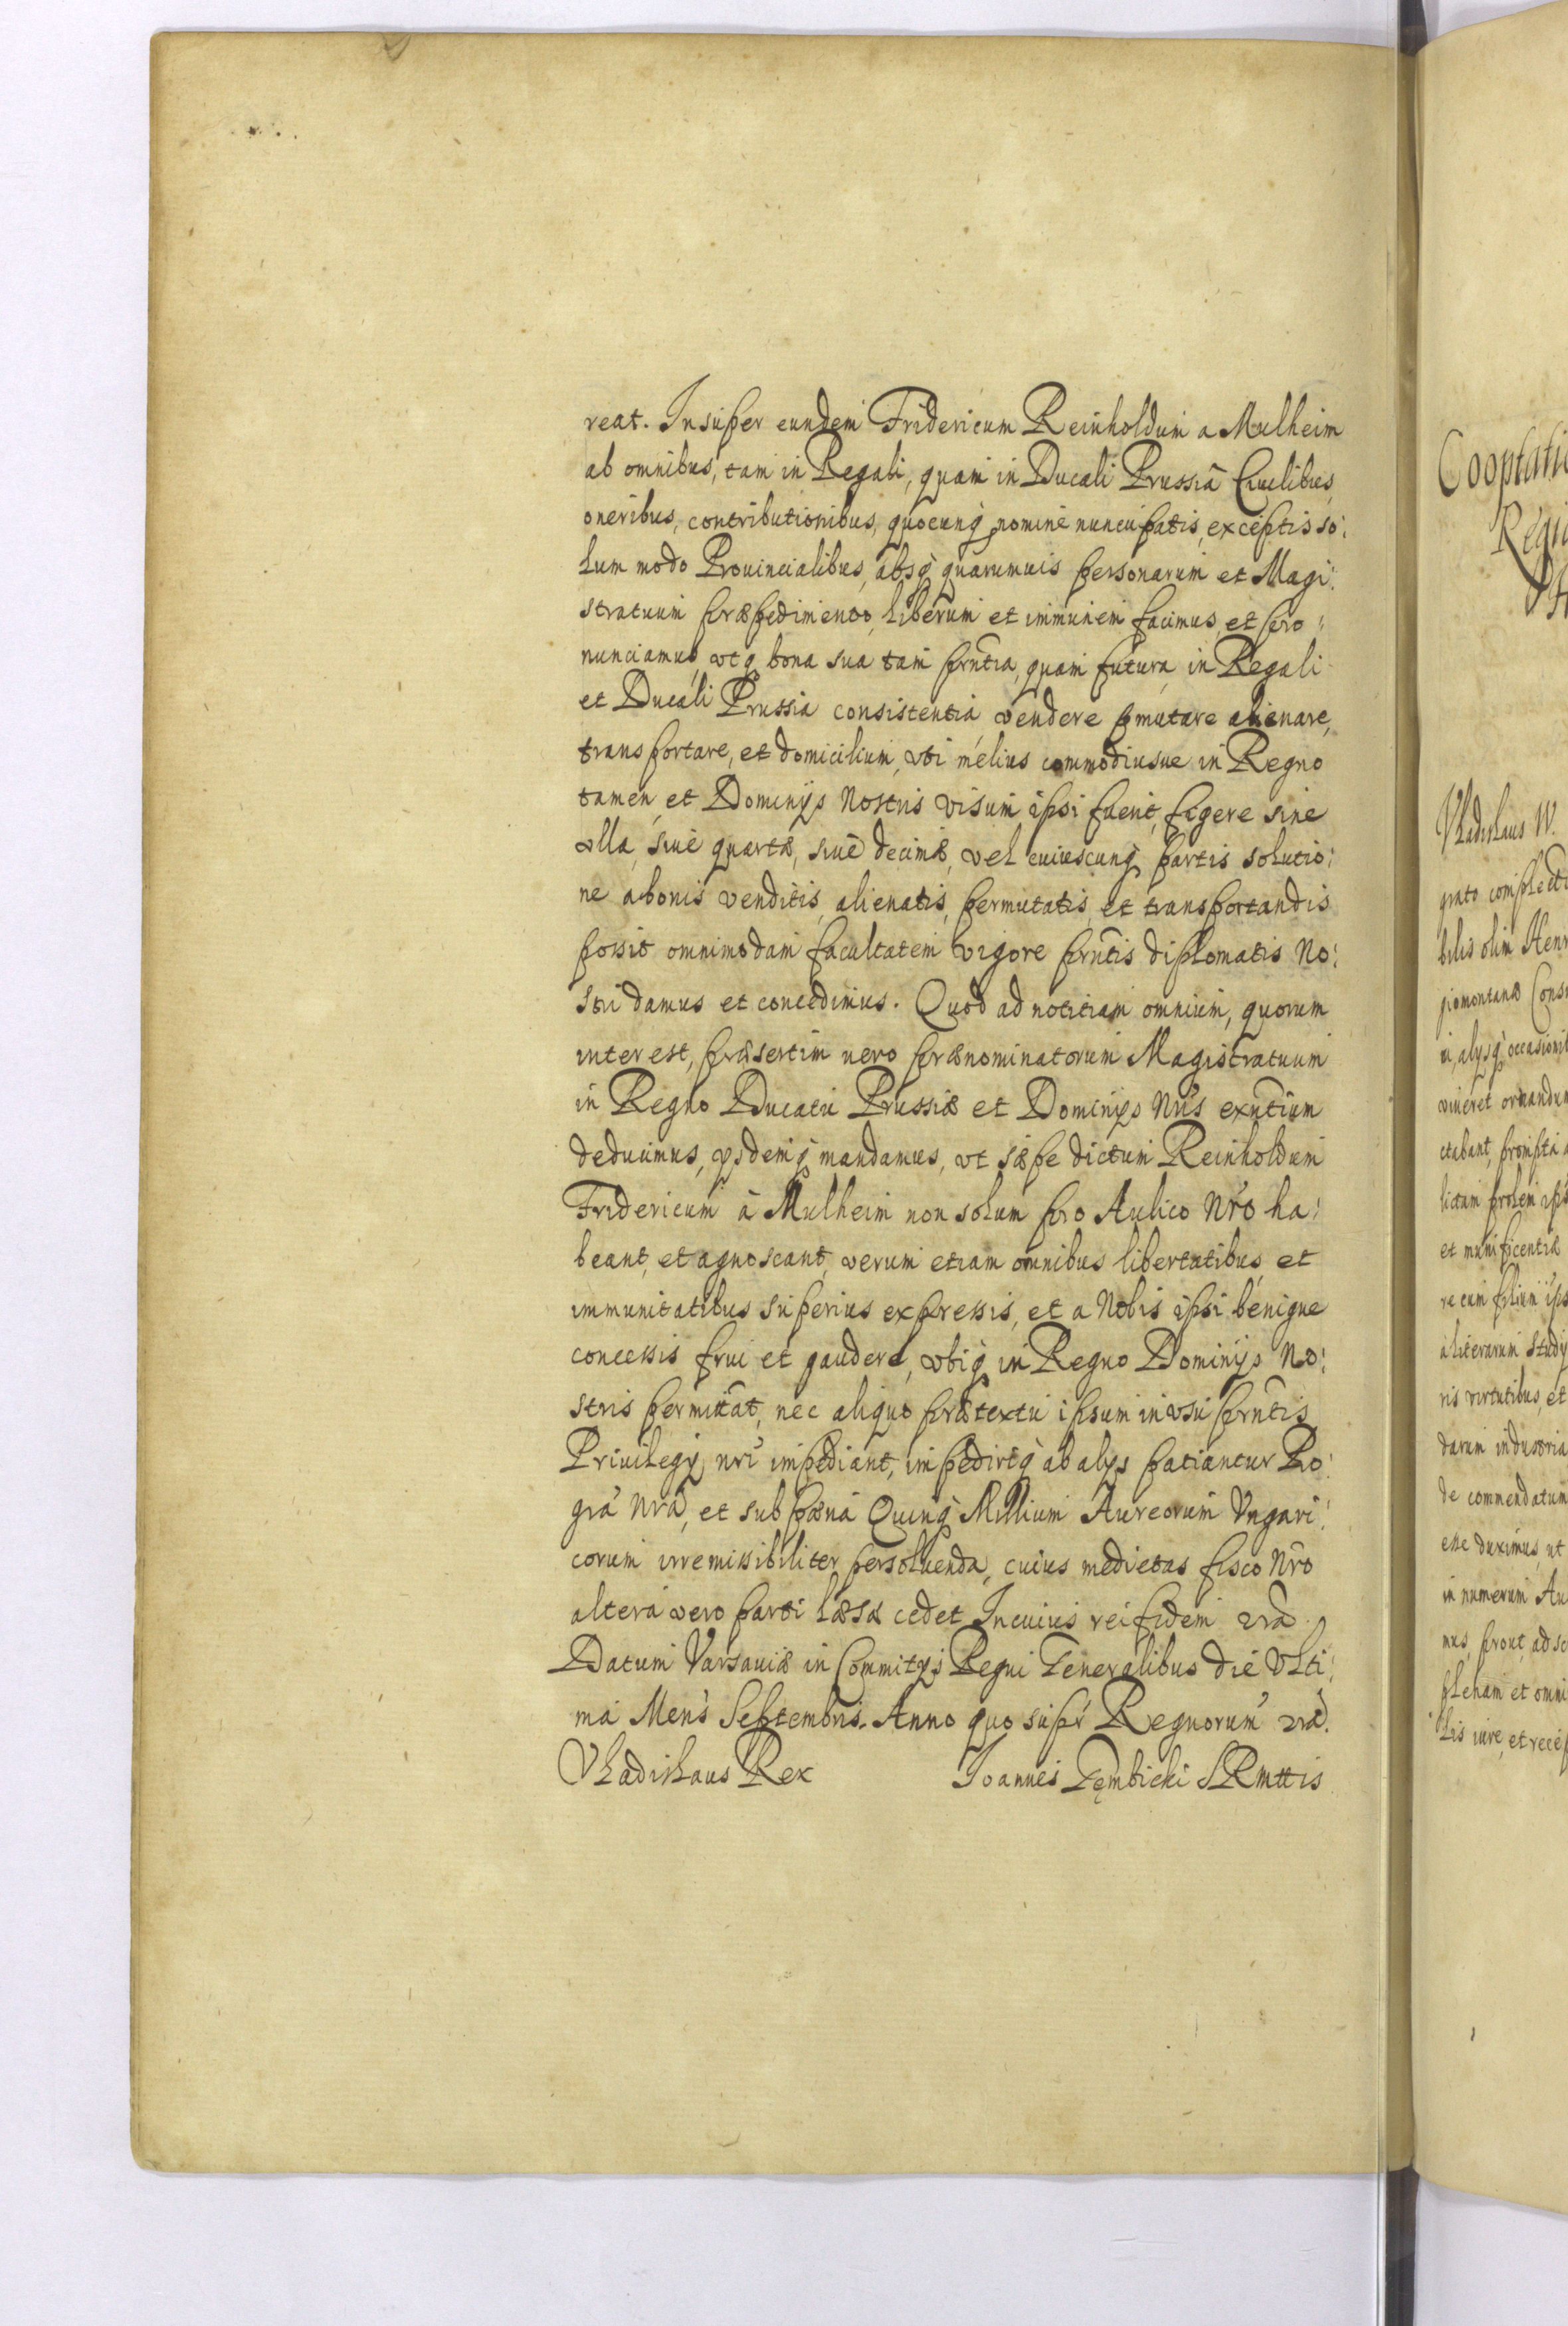 reat. Insuper eundem Fridericum Reinholdum a Mulheim
ab omnibus, tam in Regali, quam in Ducali Prussiâ Ciuilibus,
oneribus, contributionibus, quocunq₃ nomine nuncupatis, exceptis so:
lum modo Prouincialibus, absq₃ quarumuis personarum et Magi:
stratuum præpedimento, liberum et immunem facimus, et pro:
nunciamus, vtq₃ bona sua tam prñtia, quam futura, in Regali
et Ducali Prussia consistentia, vendere pmutare alienare,
transportare, et domicilium, vbi melius commodiusue in Regno
tamen, et Dominijs Nostris visum ipsi fuerit, figere sine
vlla, siuè quartæ, siuè decimæ, vel cuiuscunq₃ partis solutio:
ne abonis venditis, alienatis, permutatis, et transportandis
possit omnimodam facultatem vigore prñtis diplomatis No:
stri damus et concedimus. Quod ad notitiam omnium, quorum
interest, præsertim uero prænominatorum Magistratuum
in Regno Ducatu Prussiæ et Dominijs Nr̃is exñtium
deducimus, ysdemq₃ mandamus, vt sæpe dictum Reinholdum
Fridericum à Mulheim non solum pro Aulico Nr̃o ha:
beant, et agnoscant, verum etiam omnibus libertatibus, et
immunitatibus superius expressis, et a Nobis ipsi benigne
concessis frui et gaudere, vbiq₃ in Regno Dominijs No:
stris permittãt, nec aliquo prætextu ipsum in vsu prñtis
Priuilegij nr̃i impediant, impedirèq₃ ab alijs patiantur Pro
grã Nrã, et sub pæna Quinq₃ Millium Aureorum Vngari:
corum irremissibiliter persoluenda, cuius medietas fisco Nr̃o
altera vero parti læsæ cedet In cuius rei fidem
Datum Varsauiæ in Commitijs Regni Generalibus die Vlti:
ma Mens Septembris. Anno quo supr̃ Regnorum
Vladislaus Rex Ioannes Gembicki SRMttis
Cooptati
Regi
Vladislaus IV.
grato complecti
bilis olim Henr
giomontanæ Cons
ui, alysq₃ occasionib
viueret ornandum
ctabant, prompta a
lictam prolem ips
et munificentiæ
re cum filium ips
a literarum study
ris virtutibus, et
darum industria
de commendatum
esse duximus, ut
in numerum Au
mus, prout adsc
plenam et omni
lis iure, et recep